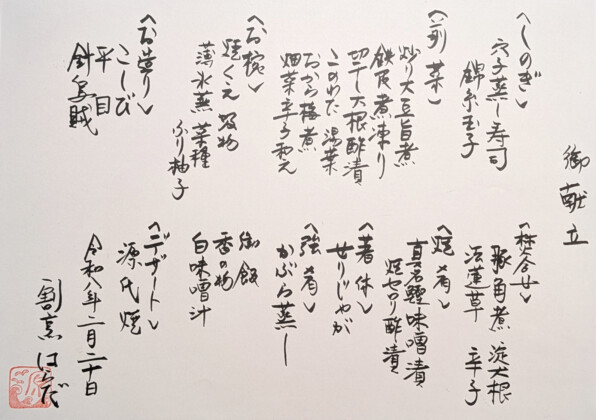 御献立
〈しのぎ〉
穴子蒸し寿司
錦糸玉子
〈前菜〉
炒り大豆旨煮
鉄皮煮凍り
切干し大根酢漬
このわた 湯葉
おから椿煮
畑菜辛子和え
〈お椀〉
焼くえ 吸物
薄氷蕪 菜種
ふり柚子
〈お造り〉
こしび
平目
針烏賊
〈焚合せ〉
豚角煮 淀大根
法蓮草 辛子
〈焼肴〉
真名鰹味噌漬
焼セロリ酢漬
〈著休〉
せりじゃが
〈強肴〉
かぶら蒸し
御飯
香の物
白味噌汁
〈デザート〉
源氏焼
令和八年二月二十日
割烹はらだ